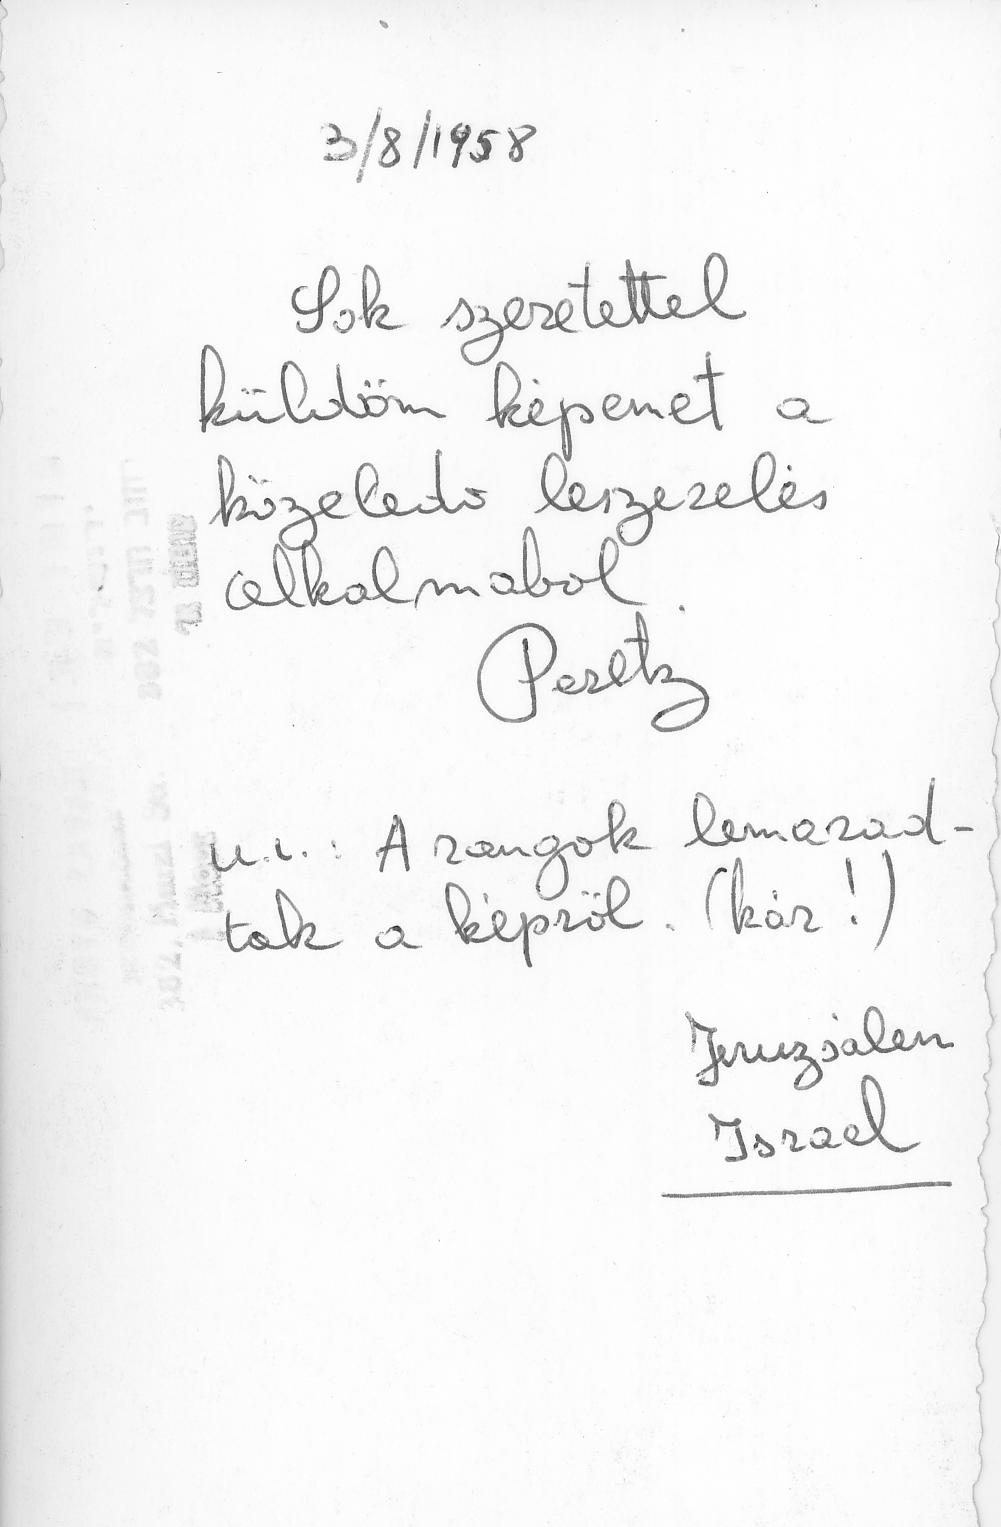 3/8/1958
Sok szeretettel
küldöm képemet a
közeledö leszerelés
alkalmabol.
Peretz
u.i.: A rangok lemarad-
tak a képröl. (kár!)
Jeruzsálem
Israel